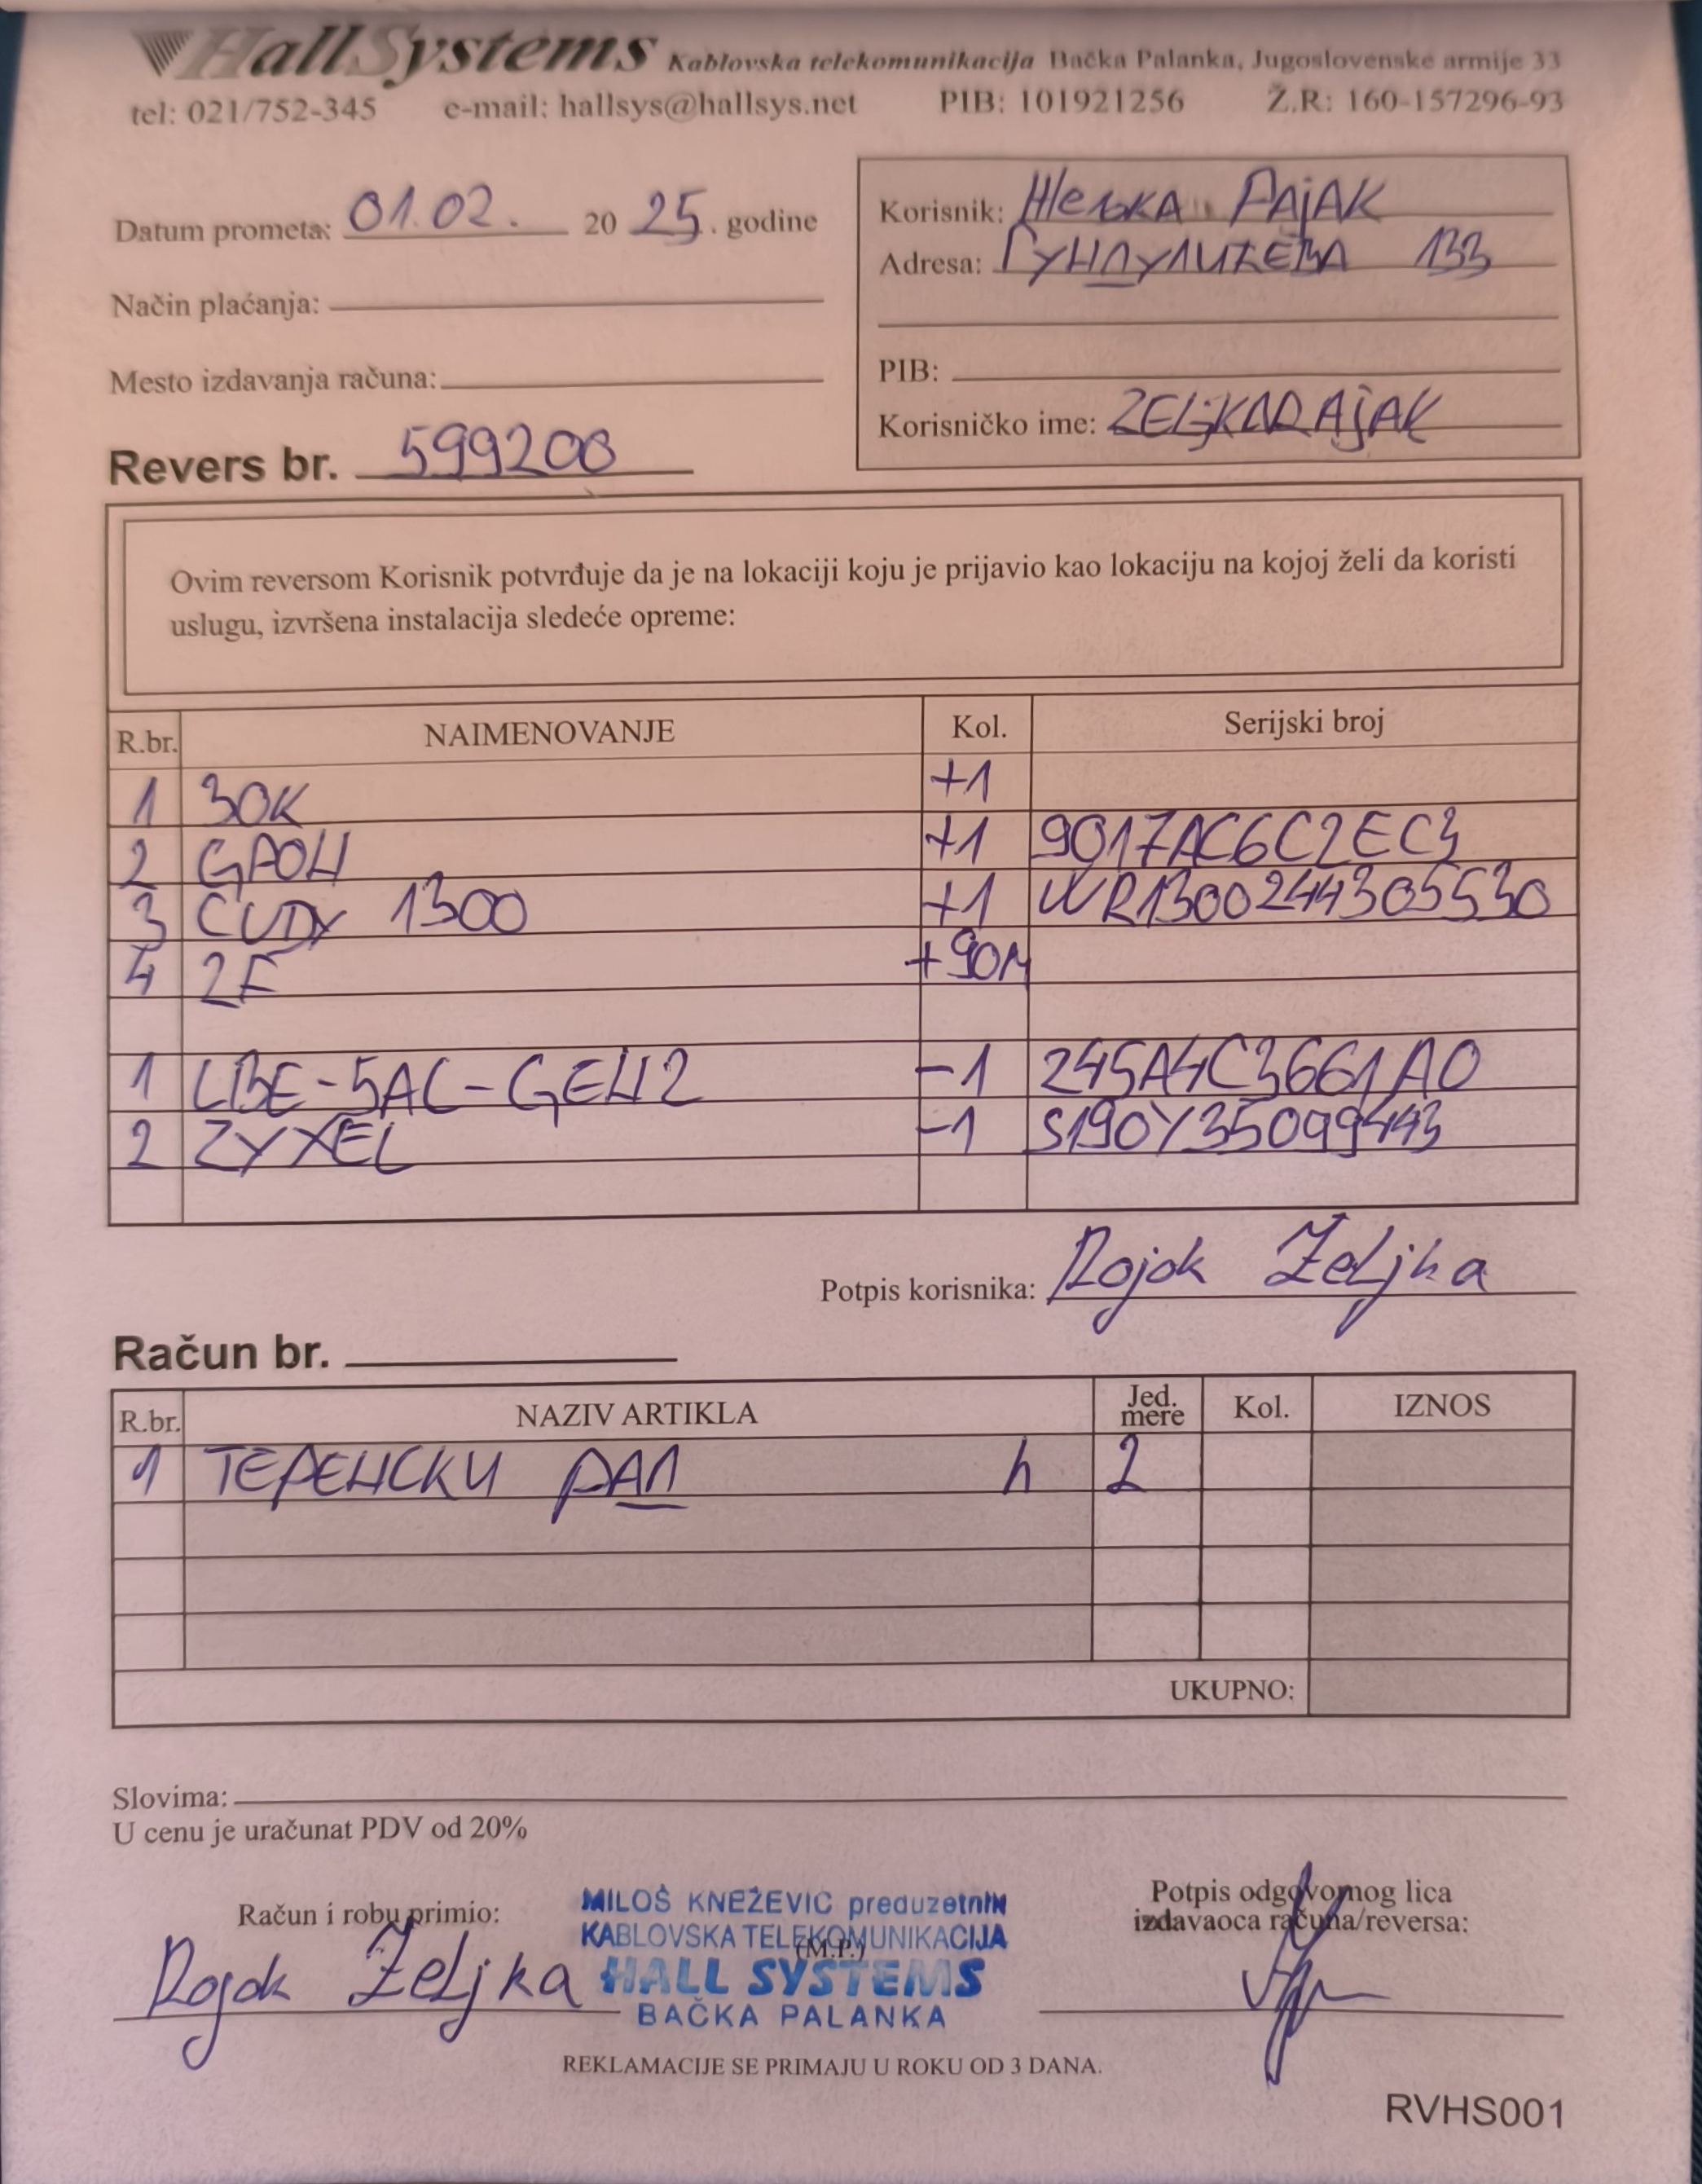 HallSystems Kablovska telekomunikacija Bačka Palanka, Jugoslovenske armije 33
tel: 021/752-345 e-mail: hallsys@hallsys.net PIB: 101921256 Ž.R: 160-157296-93
Datum prometa: 01.02. 20 25. godine
Način plaćanja:
Mesto izdavanja računa:
Revers br. 599208
Korisnik: Жељка Рајак
Adresa: Гундулићева 133
PIB:
Korisničko ime: ZELJKARAJAK
Ovim reversom Korisnik potvrđuje da je na lokaciji koju je prijavio kao lokaciju na kojoj želi da koristi
uslugu, izvršena instalacija sledeće opreme:
R.br. NAIMENOVANJE Kol. Serijski broj
1 ЗОК +1
2 GPON +1 9017AC6C2EC3
3 CUDY 1300 +1 WR1300244305530
4 2F +90M
1 LBE-5AC-GEN2 -1 245A4C3661A0
2 ZYXEL -1 S190Y35099443
Potpis korisnika: Rajak Željka
Račun br.
R.br. NAZIV ARTIKLA Jed. mere Kol. IZNOS
1 ТЕРЕНСКИ РАД h 2
UKUPNO:
Slovima:
U cenu je uračunat PDV od 20%
Račun i robu primio:
Rajak Željka
MILOŠ KNEŽEVIĆ preduzetnik
KABLOVSKA TELEKOMUNIKACIJA
(M.P.)
HALL SYSTEMS
BAČKA PALANKA
Potpis odgovornog lica
izdavaoca računa/reversa:
REKLAMACIJE SE PRIMAJU U ROKU OD 3 DANA.
RVHS001